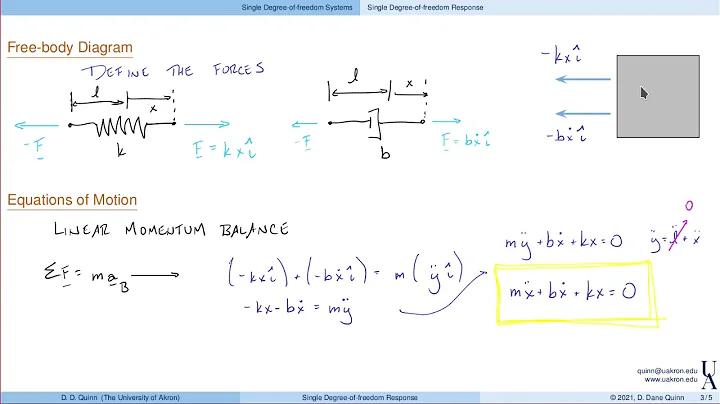 Single Degree-of-freedom Systems Single Degree-of-freedom Response
Free-body Diagram
DEFINE THE FORCES
l x
k
-F F = kxî
l x
b
-F F = bẋî
-kxî
-bẋî
Equations of Motion
LINEAR MOMENTUM BALANCE
ΣF = ma_B → (-kxî) + (-bẋî) = m(ÿî)
-kx - bẋ = mÿ
mÿ + bẋ + kx = 0
ÿ = l̈ + ẍ
0
mẍ + bẋ + kx = 0
quinn@uakron.edu
www.uakron.edu
UA
D. D. Quinn (The University of Akron) Single Degree-of-freedom Response © 2021, D. Dane Quinn 3/5